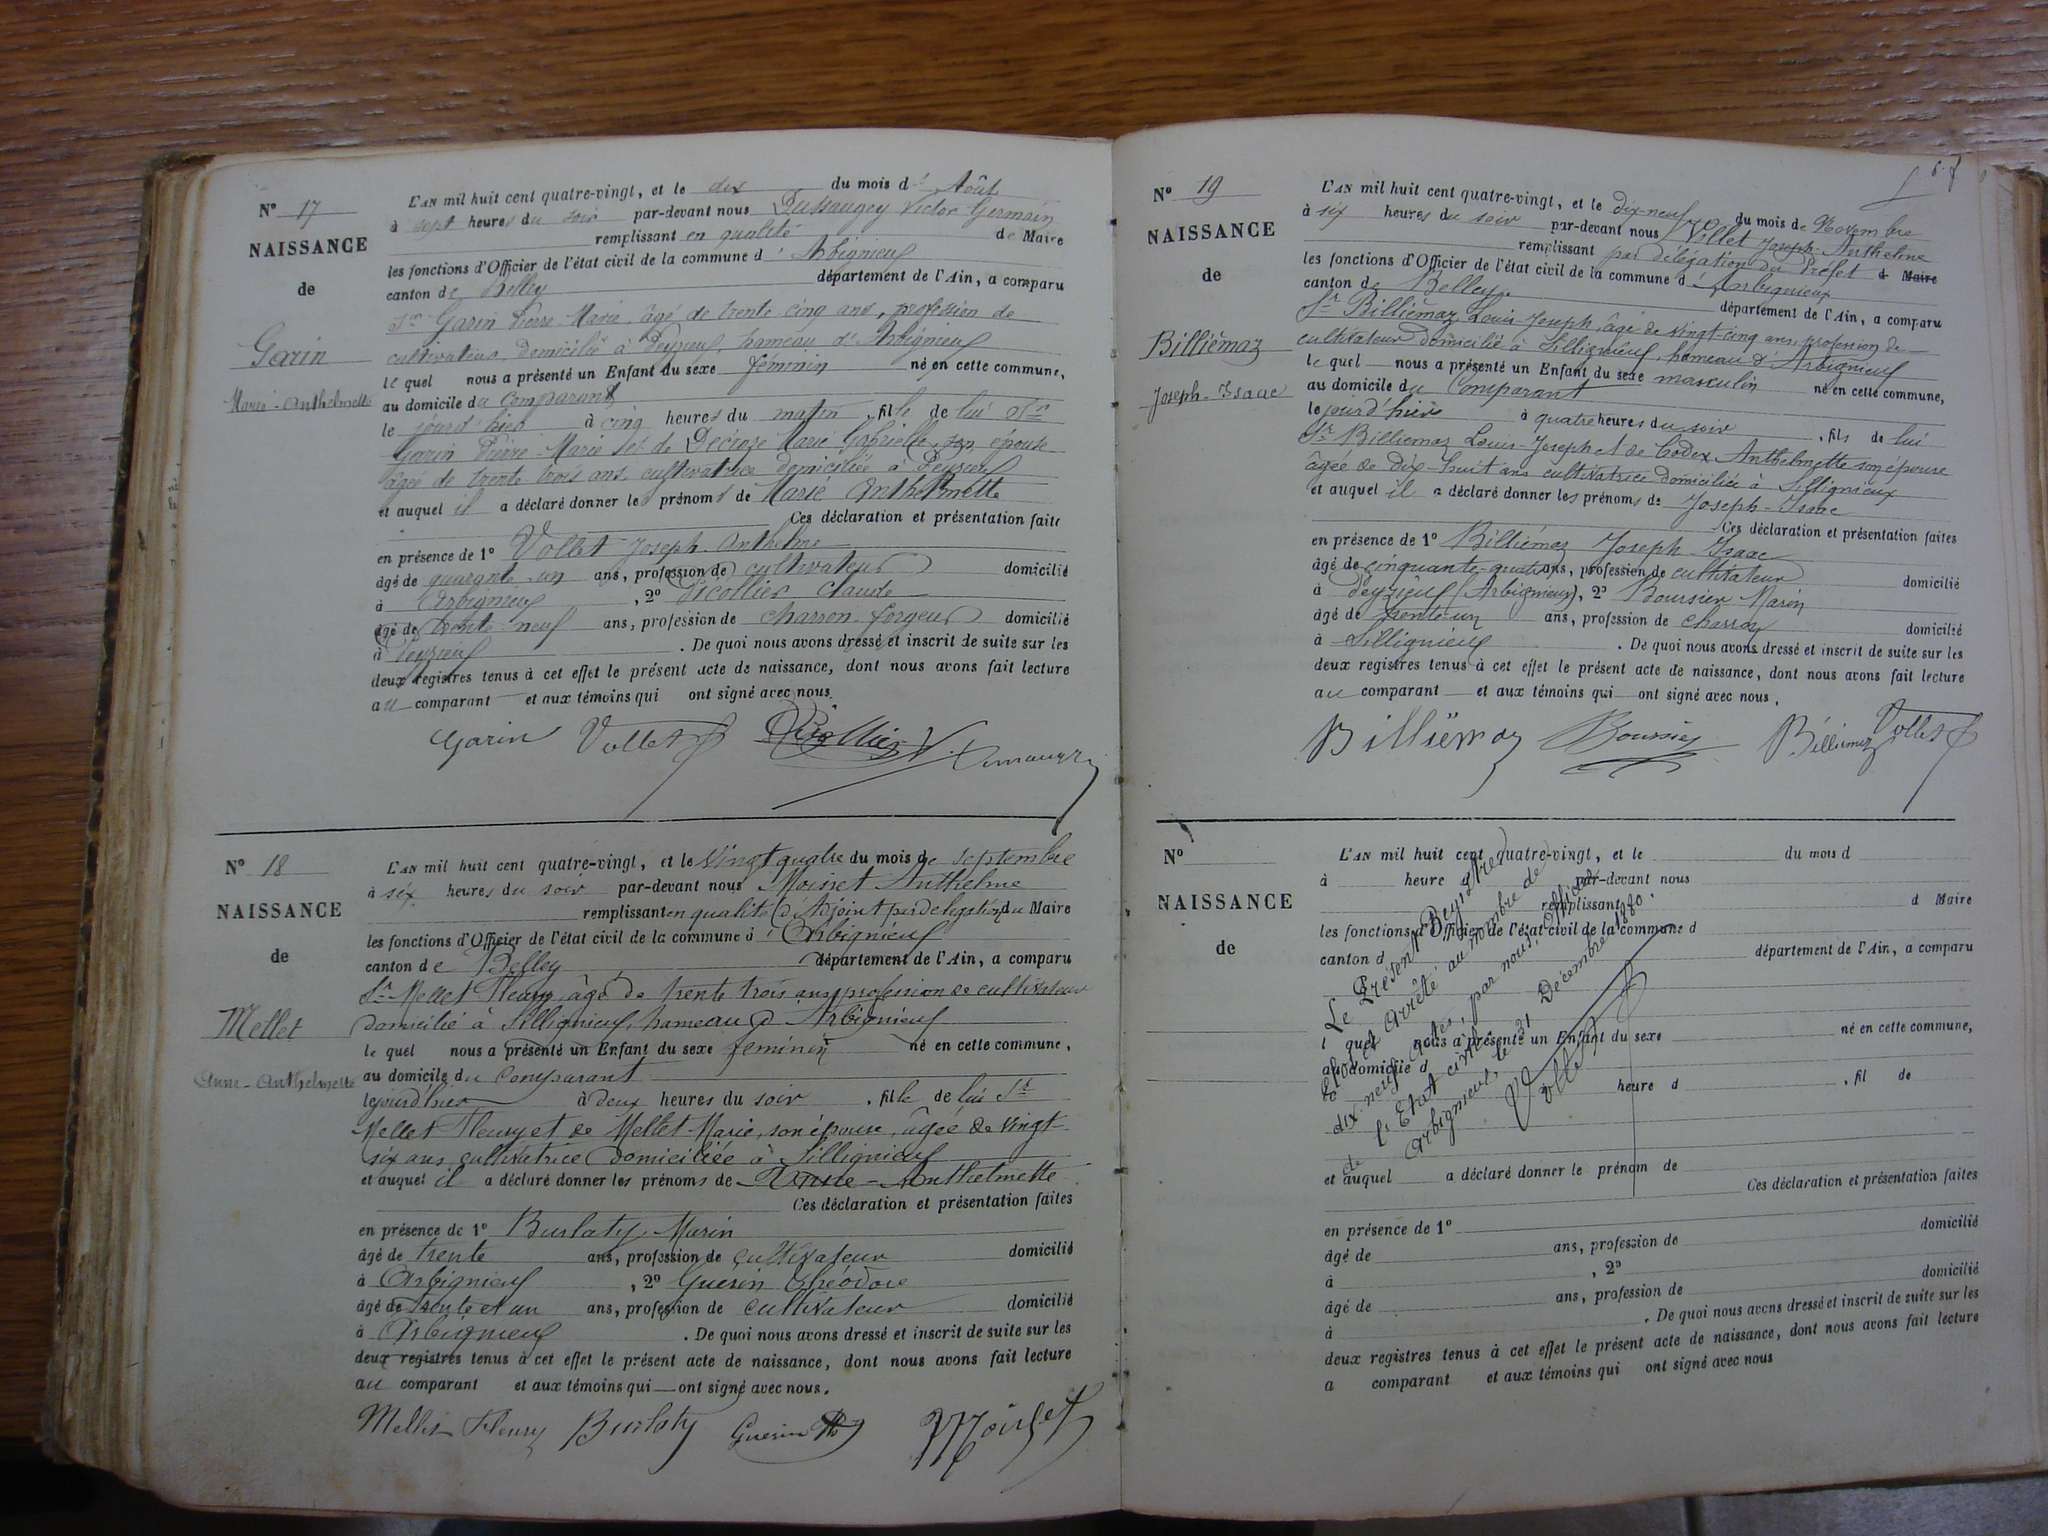 N° 17
NAISSANCE
de
Garin
Marie-Anthelmette
L'AN mil huit cent quatre-vingt, et le dix du mois d' Août
à sept heures du soir par-devant nous Dussaugey Victor Germain
remplissant en qualité de Maire
les fonctions d'Officier de l'état civil de la commune d' Arbignieu
canton de Belley département de l'Ain, a comparu
Sr Garin Pierre Marie, âgé de trente cinq ans, profession de
cultivateur, domicilié à Peyzieu, hameau d'Arbignieu
le quel nous a présenté un Enfant du sexe féminin né en cette commune,
au domicile du comparant
le jourd'hier à cinq heures du matin, fille de lui Sr
Garin Pierre-Marie et de Decroze Marie Gabrielle, son épouse
âgée de trente trois ans, cultivatrice domiciliée à Peyzieu
et auquel il a déclaré donner les prénoms de Marie Anthelmette
Ces déclaration et présentation faites
en présence de 1° Vollet Joseph-Anthelme
âgé de quarante-un ans, profession de cultivateur domicilié
à Arbignieu, 2° Picollier Claude
âgé de trente neuf ans, profession de charron-forgeur domicilié
à Peyzieu. De quoi nous avons dressé et inscrit de suite sur les
deux registres tenus à cet effet le présent acte de naissance, dont nous avons fait lecture
au comparant et aux témoins qui ont signé avec nous.
Garin Vollet Picollier V. Dussaugey
N° 18
NAISSANCE
de
Mellet
Anne-Anthelmette
L'AN mil huit cent quatre-vingt, et le vingt quatre du mois de septembre
à six heures du soir par-devant nous Moiret Anthelme
remplissant en qualité d'Adjoint par délégation du Maire
les fonctions d'Officier de l'état civil de la commune d' Arbignieu
canton de Belley département de l'Ain, a comparu
Sr Mellet Fleury, âgé de trente trois ans, profession de cultivateur
domicilié à Sillignieu, hameau d'Arbignieu
le quel nous a présenté un Enfant du sexe féminin né en cette commune,
au domicile du comparant
le jourd'hier à deux heures du soir, fille de lui Sr
Mellet Fleury et de Mellet Marie, son épouse, âgée de vingt
six ans, cultivatrice domiciliée à Sillignieu
et auquel il a déclaré donner les prénoms de Anne-Anthelmette
Ces déclaration et présentation faites
en présence de 1° Burlaty Marin
âgé de trente ans, profession de cultivateur domicilié
à Arbignieu, 2° Guérin Théodore
âgé de trente et un ans, profession de cultivateur domicilié
à Arbignieu. De quoi nous avons dressé et inscrit de suite sur les
deux registres tenus à cet effet le présent acte de naissance, dont nous avons fait lecture
au comparant et aux témoins qui ont signé avec nous.
Mellet Fleury Burlaty Guerin Th Moiret
N° 19
NAISSANCE
de
Billiémaz
Joseph-Isaac
L'AN mil huit cent quatre-vingt, et le dix-neuf du mois de Novembre
à six heures du soir par-devant nous Vollet Joseph-Anthelme
remplissant par délégation du Préfet d Maire
les fonctions d'Officier de l'état civil de la commune d' Arbignieu
canton de Belley département de l'Ain, a comparu
Sr Billiémaz Louis-Joseph, âgé de vingt-cinq ans, profession de
cultivateur domicilié à Sillignieu, hameau d'Arbignieu
le quel nous a présenté un Enfant du sexe masculin né en cette commune,
au domicile du comparant
le jourd'hier à quatre heures du soir, fils de lui
Sr Billiemaz Louis-Joseph et de Bodex Anthelmette son épouse
âgée de dix-huit ans cultivatrice domiciliée à Sillignieux
et auquel il a déclaré donner les prénoms de Joseph-Isaac
Ces déclaration et présentation faites
en présence de 1° Billiémaz Joseph-Isaac
âgé de cinquante-quatre ans, profession de cultivateur domicilié
à Peyzieu (Arbignieux), 2° Boursier Marin
âgé de trente-un ans, profession de charron domicilié
à Sillignieu. De quoi nous avons dressé et inscrit de suite sur les
deux registres tenus à cet effet le présent acte de naissance, dont nous avons fait lecture
au comparant et aux témoins qui ont signé avec nous.
Billiémaz Boursier Billiemaz Vollet
N°
NAISSANCE
de
L'AN mil huit cent quatre-vingt, et le du mois d
à heure d par-devant nous
remplissant d Maire
les fonctions d'Officier de l'état civil de la commune d
canton d département de l'Ain, a comparu
l quel nous a présenté un Enfant du sexe né en cette commune,
au domicile d
le heure d , fil de
et auquel a déclaré donner le prénom de
Ces déclaration et présentation faites
en présence de 1°
âgé de ans, profession de domicilié
à , 2°
âgé de ans, profession de domicilié
à . De quoi nous avons dressé et inscrit de suite sur les
deux registres tenus à cet effet le présent acte de naissance, dont nous avons fait lecture
a comparant et aux témoins qui ont signé avec nous
Le Présent Registre
clos et arrêté au nombre de
dix-neuf actes, par nous, officier
de l'Etat civil
Arbignieu, le 31 Décembre 1880.
Vollet